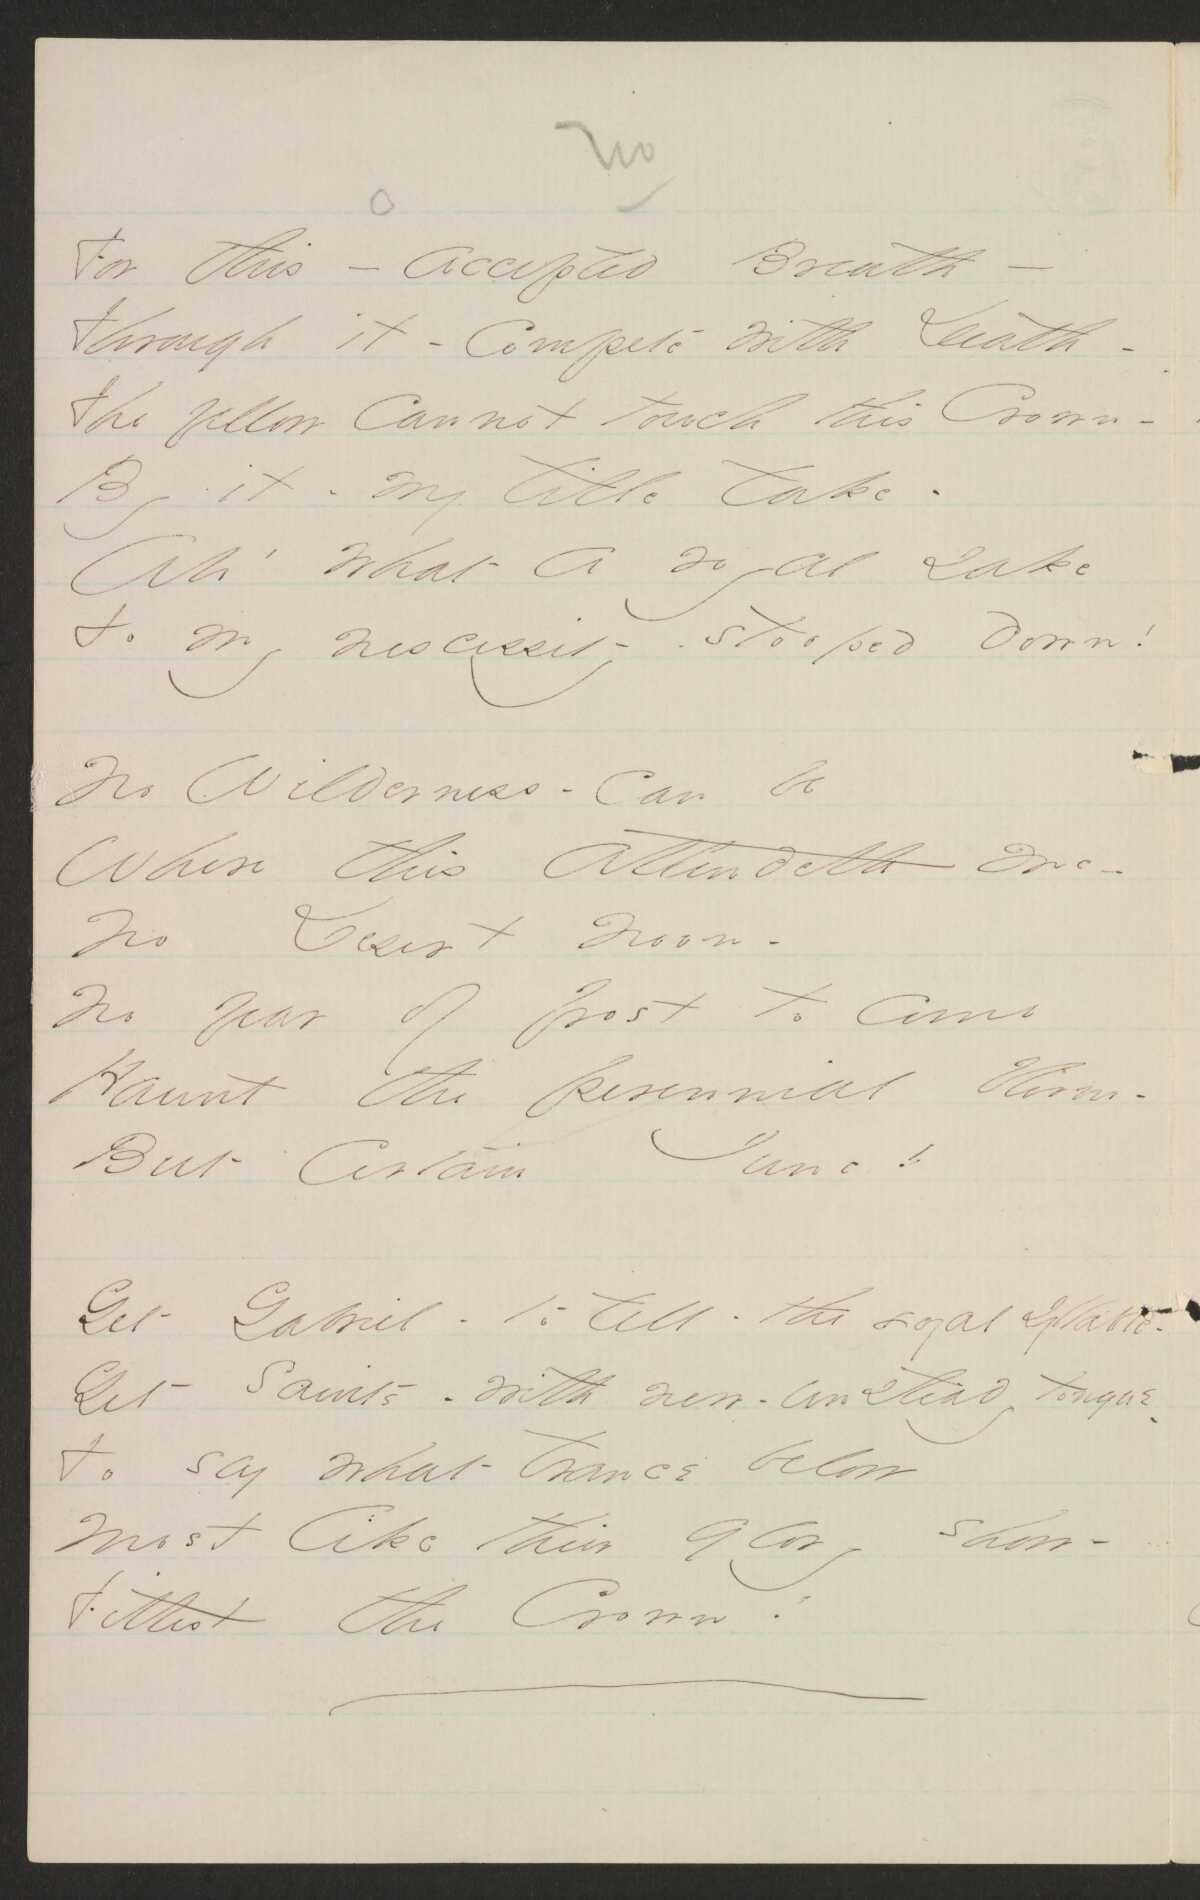 No
For this - accepted Breath -
Through it - compete with Death -
The fellow cannot touch this Crown -
By it - my title take -
Ah, what a royal sake
To my nescessity - stooped down!
No Wilderness - can be
Where this attendeth me -
No Desert Noon -
No fear of frost to come
Haunt the perennial bloom -
But Certain June!
Get Gabriel - to tell - the royal syllable -
Get Saints - with new - unsteady tongue -
To say what trance below
Most like their glory show -
Fittest the Crown!